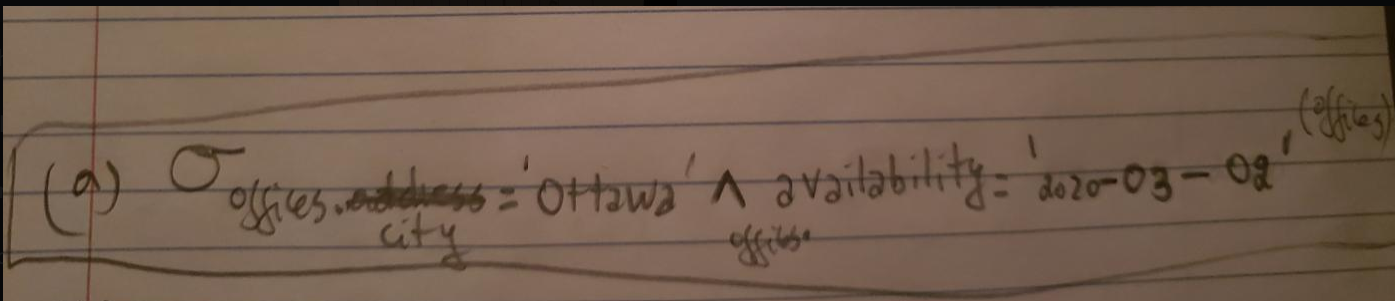 (a) σ offices.city = 'Ottawa' ∧ offices.availability = '2020-03-02' (offices)